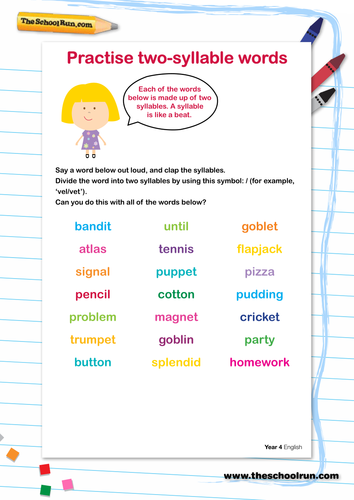 TheSchoolRun.com
Practise two-syllable words
Each of the words
below is made up of two
syllables. A syllable
is like a beat.
Say a word below out loud, and clap the syllables.
Divide the word into two syllables by using this symbol: / (for example,
‘vel/vet’).
Can you do this with all of the words below?
bandit until goblet
atlas tennis flapjack
signal puppet pizza
pencil cotton pudding
problem magnet cricket
trumpet goblin party
button splendid homework
Year 4 English
www.theschoolrun.com